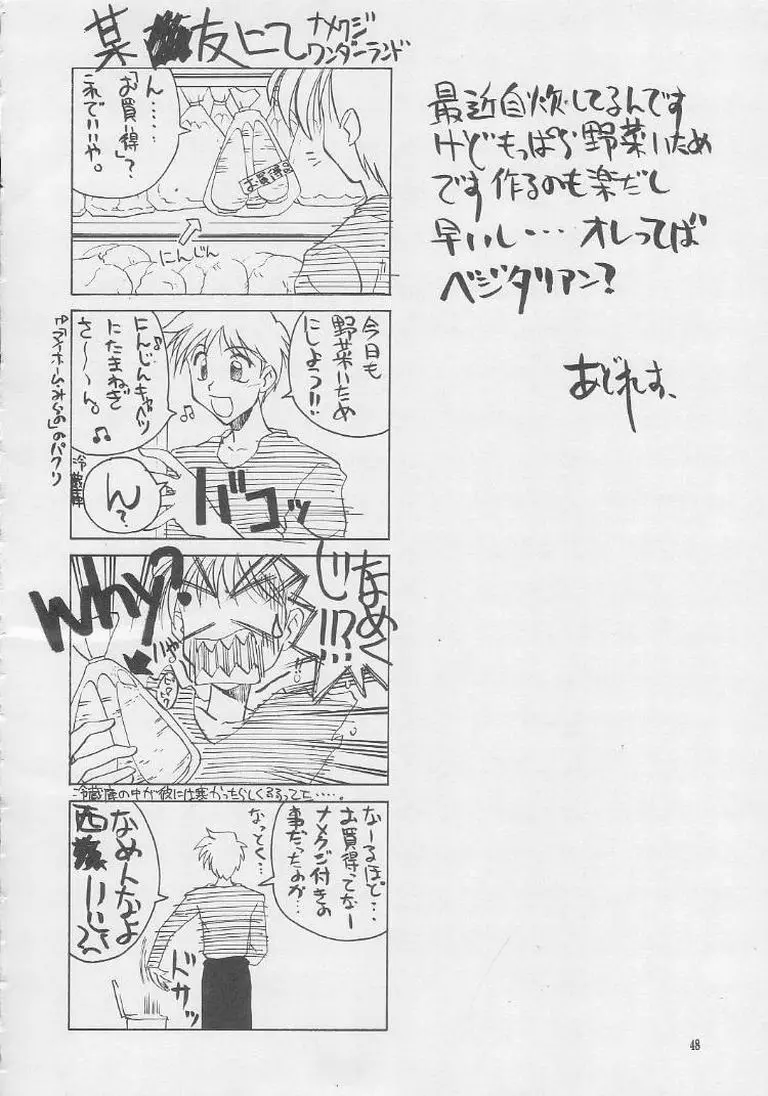 某 友にて
ナメクジ
ワンダーランド
ん……
「お買得」?
これでいいや。
お買得品
にんじん
今日も
野菜いため
にしよう!!
にんじんキャベツ
にたまねぎ
さ〜〜ん。
ん?
冷蔵庫
ゆ「マイホームみらの」のパクリ
バコッ
なめく
じ!!?
Why?
冷蔵庫の中が彼には寒かったらしくまるまってた……。
なーるほど…
お買得ってなー
ナメクジ付きの
事だったのか…
なっとく…
なめんなよ
西
ドサッ
最近自炊してるんです
けどもっぱら野菜いため
です作るのも楽だし
早いし…オレってば
ベジタリアン?
あどれす、
48